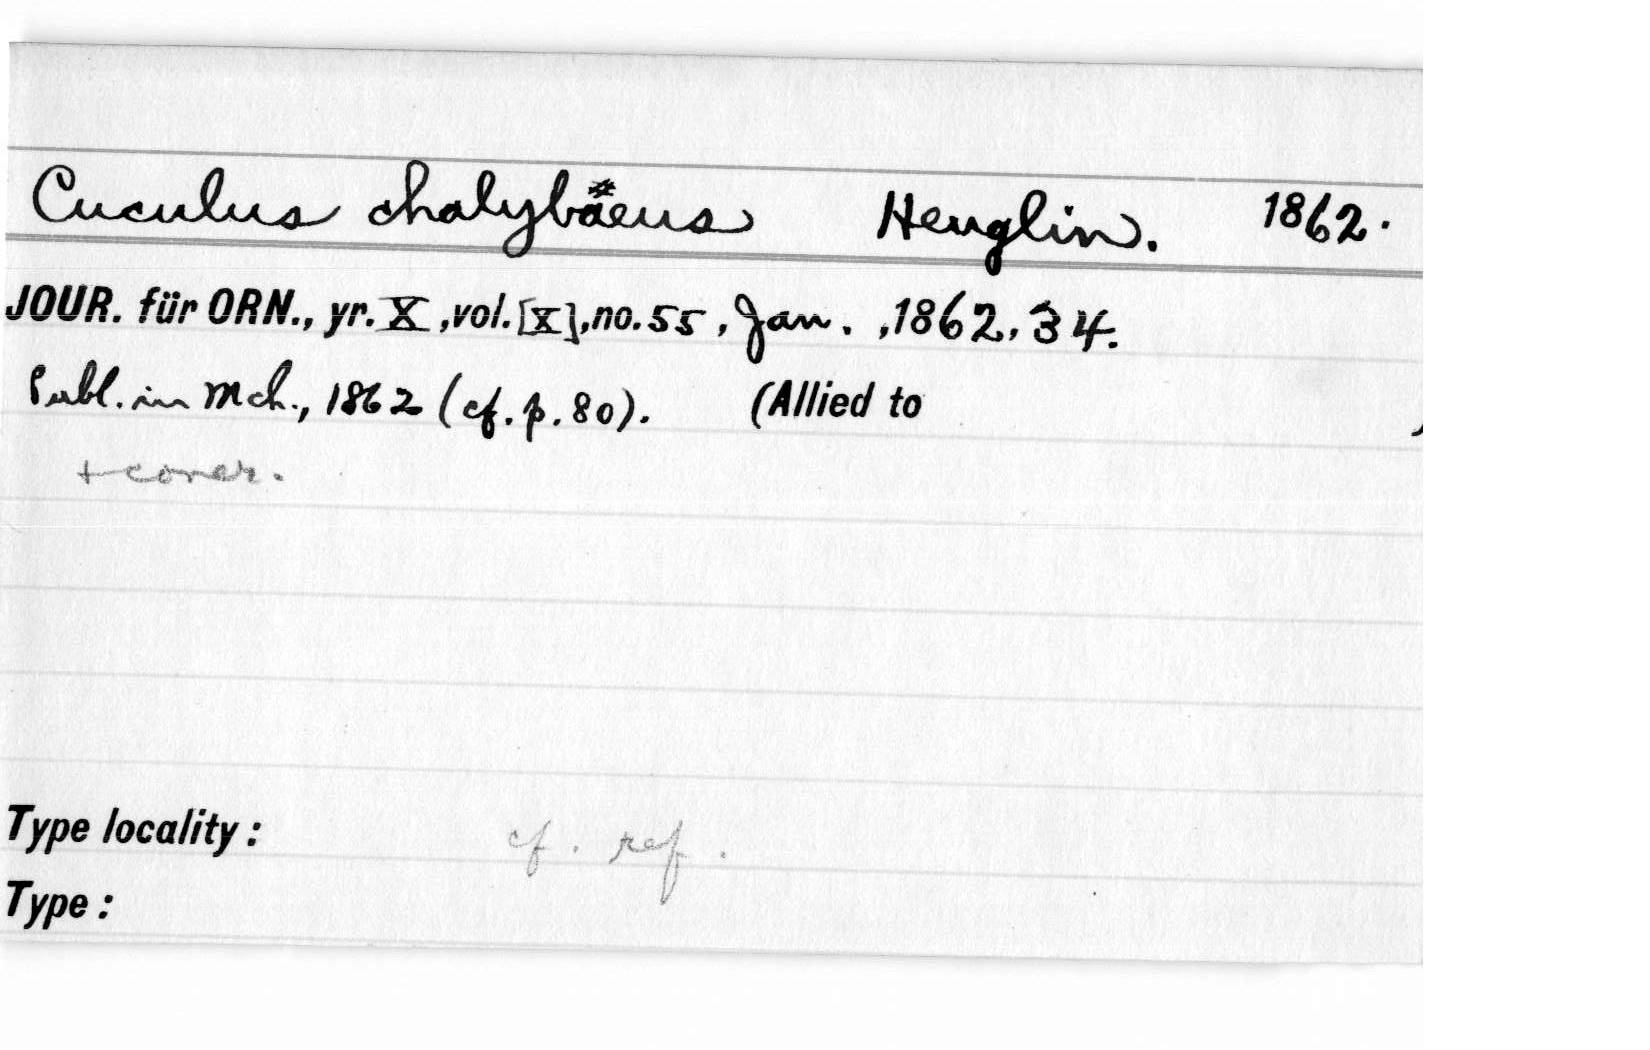 Cuculus chalybäeus Heuglin. 1862.
JOUR. für ORN., yr. X, vol. [X], no. 55, Jan., 1862, 34.
Publ. in Mch., 1862 (cf. p. 80). (Allied to )
+ cover.
Type locality: cf. ref.
Type: